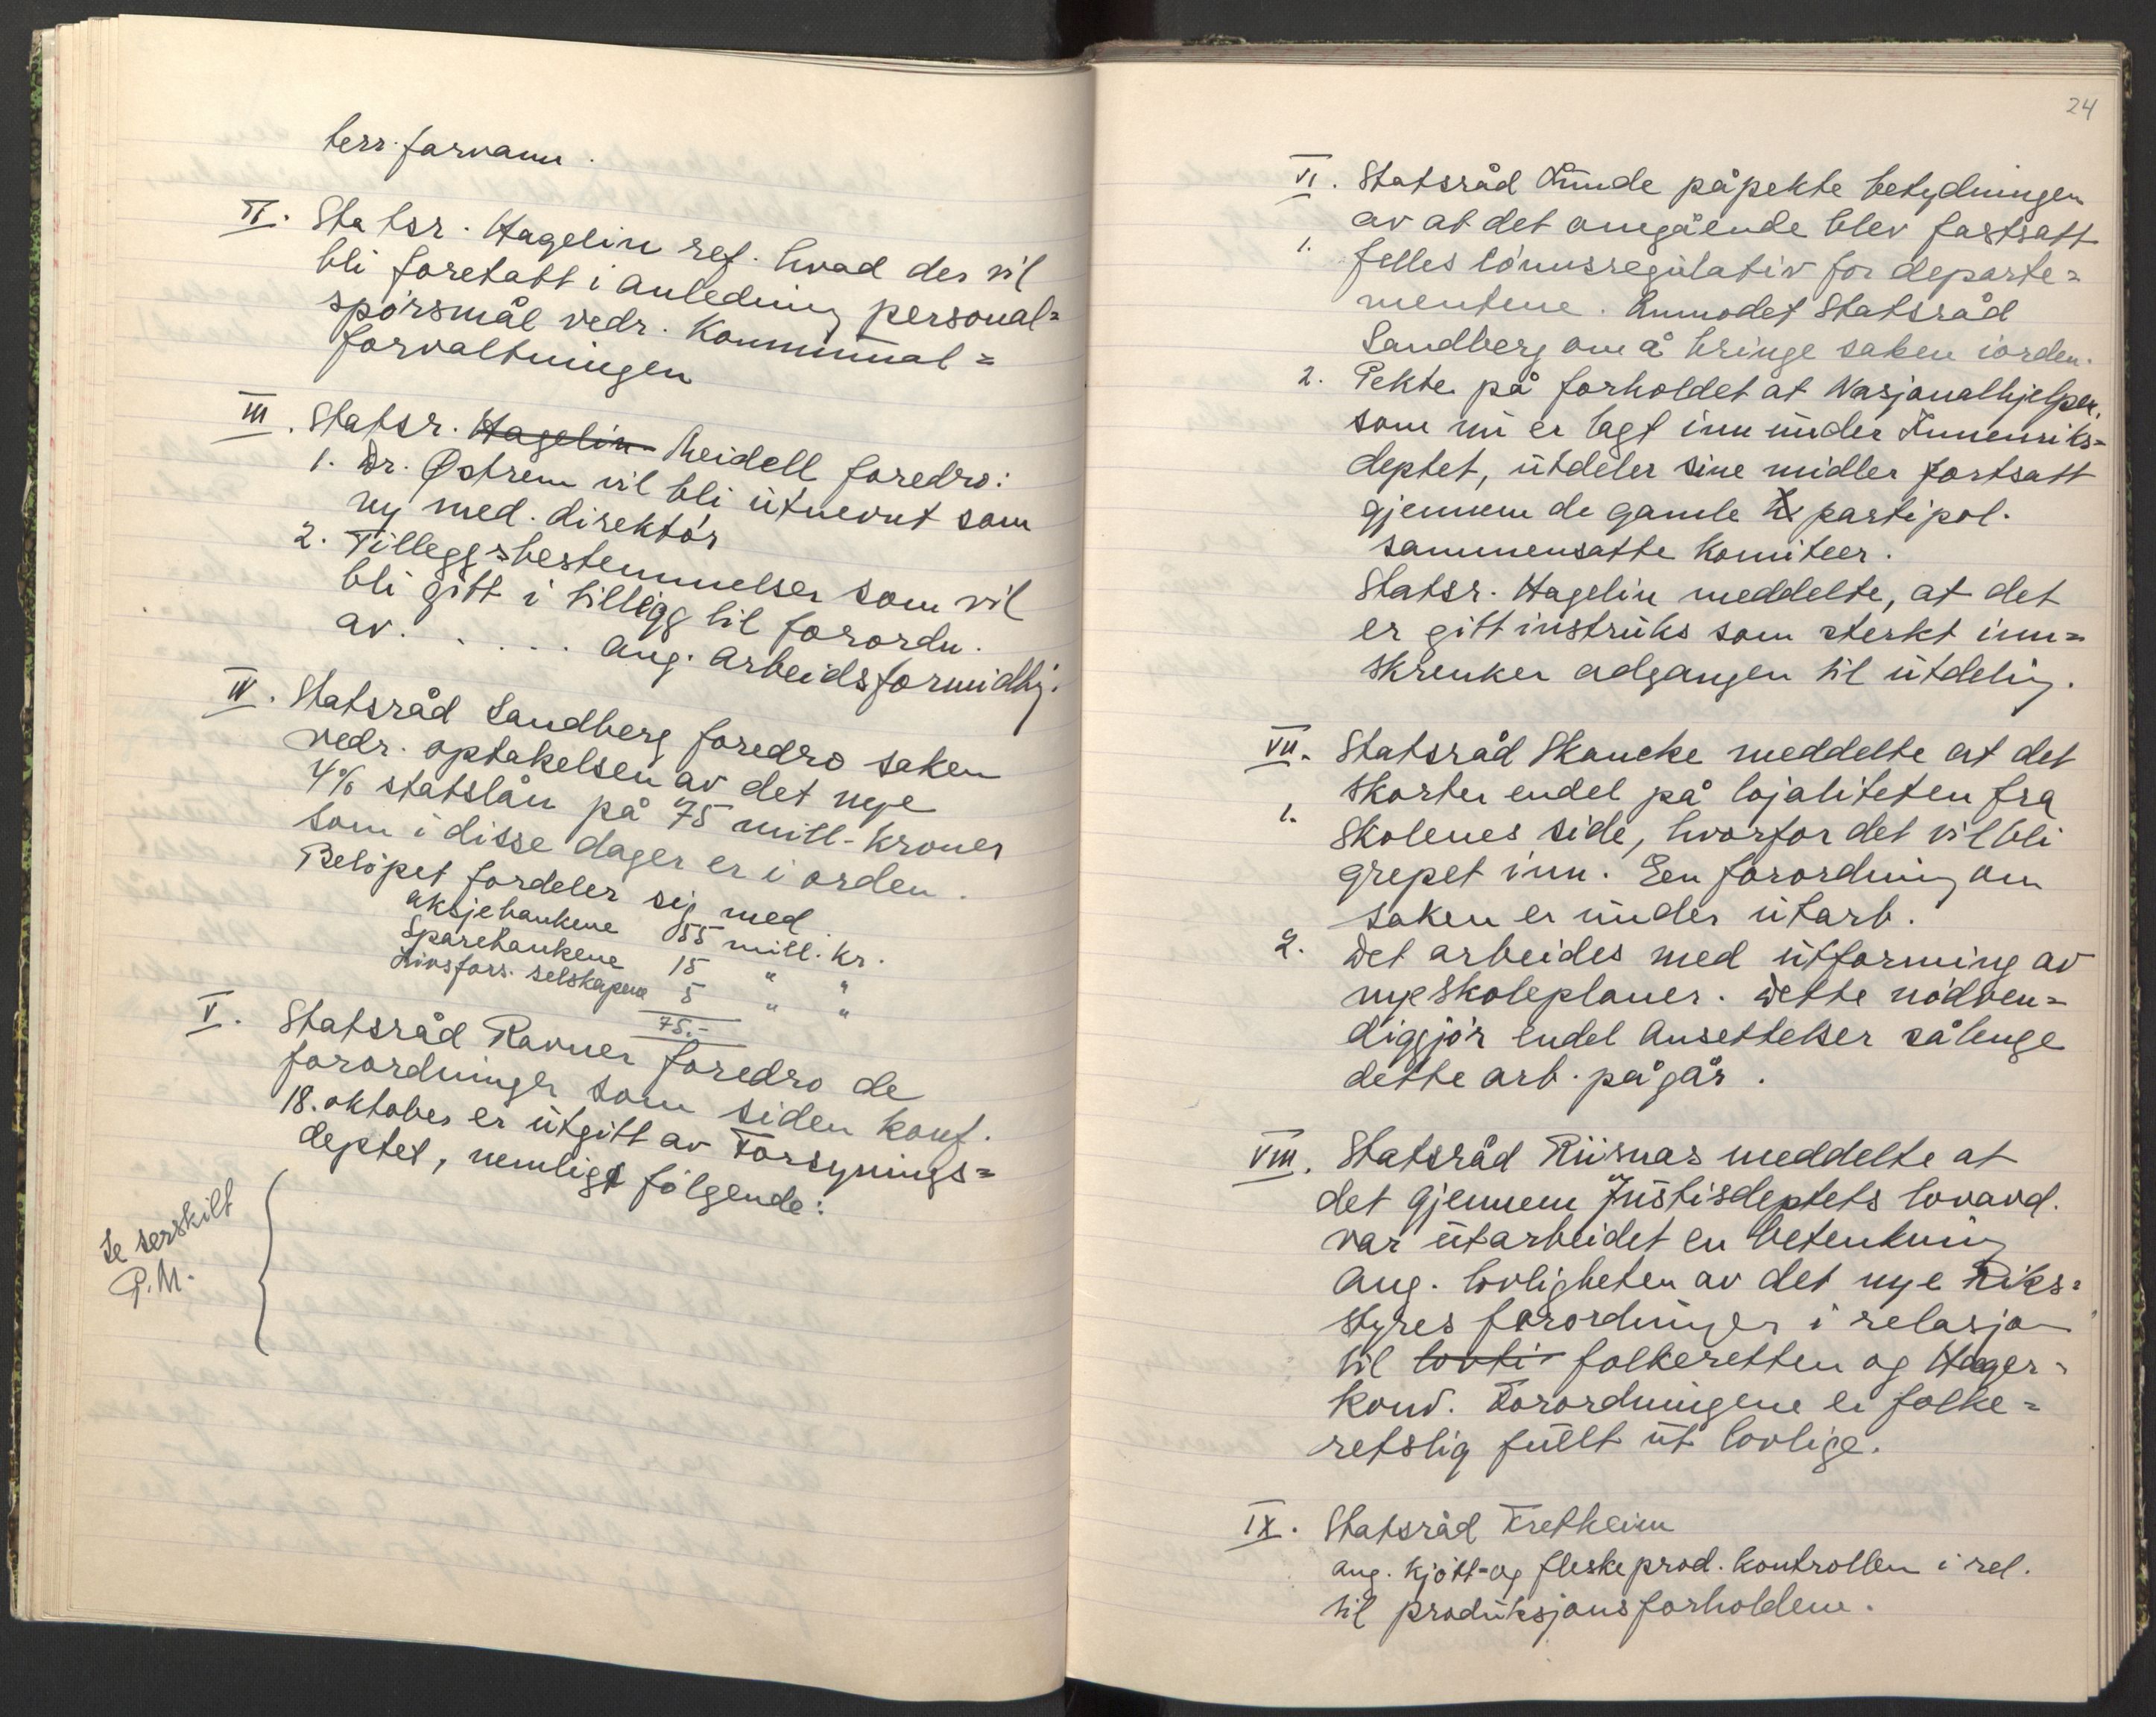 berr. farvann.
II. Statsr. Hagelin ref. hvad der vil
bli foretatt i anledning personal=
spørsmål vedr. Kommunal=
forvaltningen
III. Statsr. Hagelin Meidell foredro:
1. Dr. Østrem vil bli utnevnt som
ny med. direktør
2. Tilleggsbestemmelser som vil
bli gitt i tillegg til forordn.
av. . . . . ang. arbeidsformidlg.
IV. Statsråd Sandberg foredro saken
vedr. optakelsen av det nye
4% statslån på 75 mill. kroner
som i disse dager er i orden.
Beløpet fordeler sig med
aksjebankene 55 mill. kr.
Sparebankene 15 " "
Livsfors. selskapene 5 " "
75.-
V. Statsråd Ravner foredro de
forordninger som siden konf.
18. oktober er utgitt av Forsynings=
deptet, nemlig følgende:
Se serskilt
P.M.
24
VI. Statsråd Lunde påpekte betydningen
av at det omgående blev fastsatt
1. felles lønnsregulativ for departe=
mentene. Anmodet Statsråd
Sandberg om å bringe saken iorden.
2. Pekte på forholdet at Nasjonalhjelpen,
som nu er lagt inn under Innenriks=
deptet, utdeler sine midler fortsatt
gjennem de gamle partipol.
sammensatte Komiteer.
Statsr. Hagelin meddelte, at det
er gitt instruks som sterkt inn=
skrenker adgangen til utdeling.
VII. Statsråd Skancke meddelte at det
skorter endel på lojaliteten fra
1. skolenes side, hvorfor det vil bli
grepet inn. Een forordning om
saken er under utarb.
2. Det arbeides med utforming av
nye skoleplaner. Dette nødven=
diggjør endel ansettelser sålenge
dette arb. pågår.
VIII. Statsråd Riisnæs meddelte at
det gjennem Justisdeptets lovavd.
var utarbeidet en betenkning
ang. lovligheten av det nye Riks=
styres forordninger i relasjon
til lovli folkeretten og Haager=
konv. Forordningene er folke=
retslig fullt ut lovlige.
IX. Statsråd Fretheim
ang. kjøtt- og fleskeprod. kontrollen i rel.
til produksjonsforholdene.